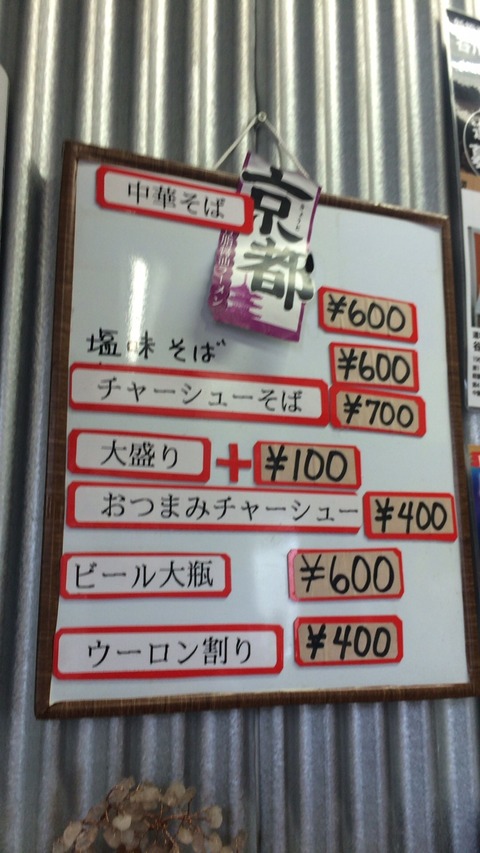 中華そば
京都
¥600
塩味そば
¥600
チャーシューそば
¥700
大盛り + ¥100
おつまみチャーシュー
¥400
ビール大瓶
¥600
ウーロン割り
¥400